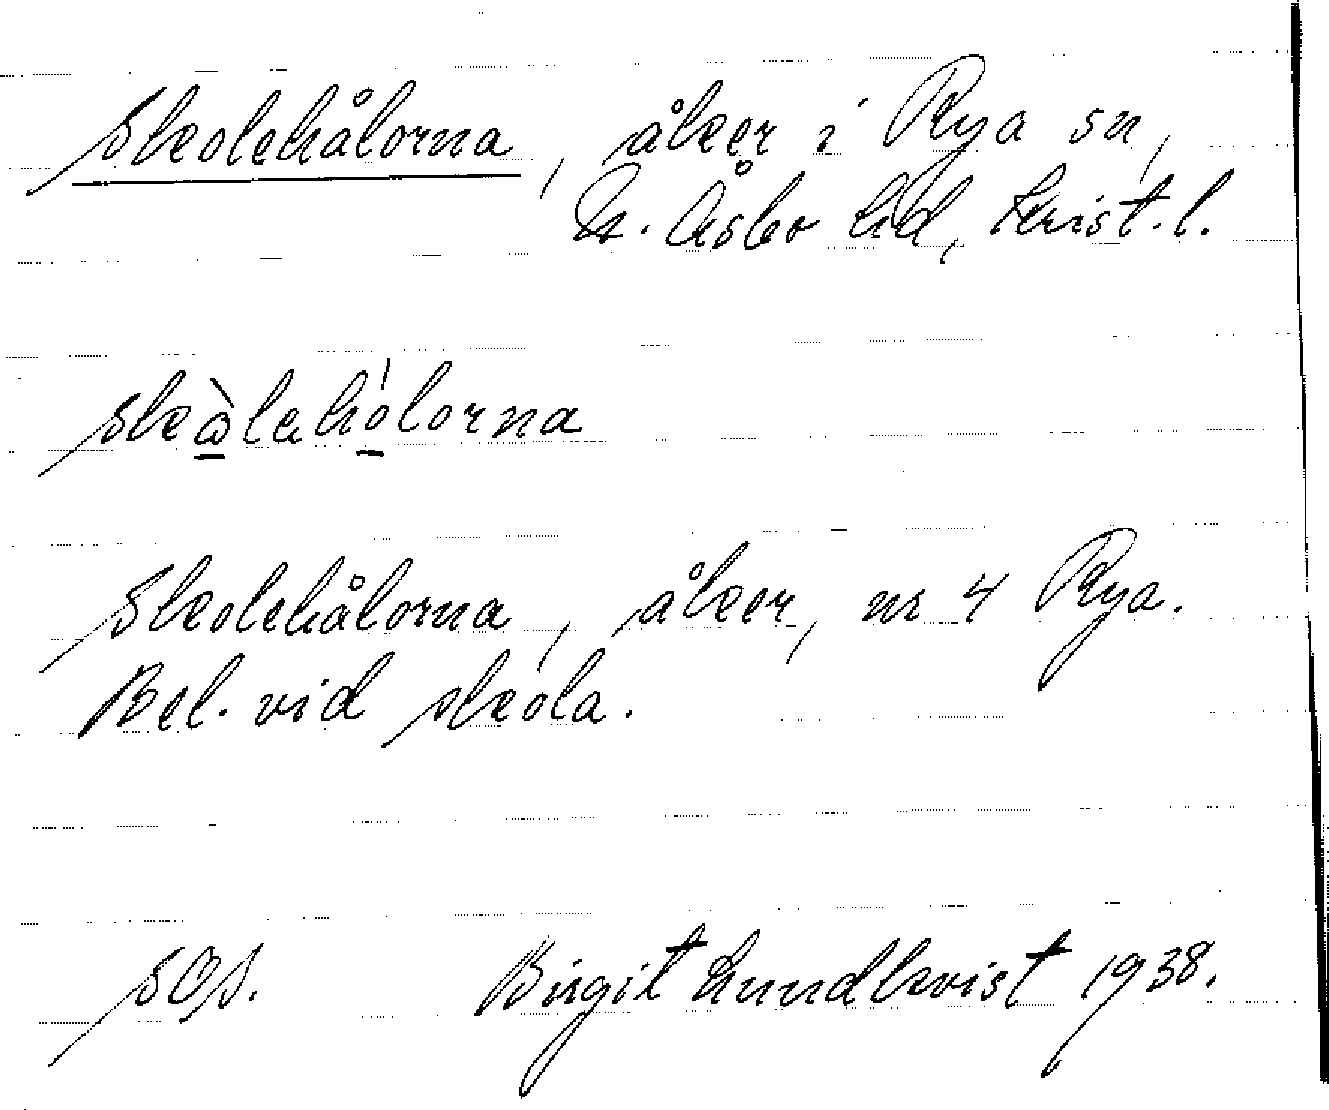 Skolehålorna, åker i Rya sn,
N. Åsbo hd, Krist. l.
skὼlehólorna
Skolehålorna, åker, nr 4 Rya.
Bel. vid skola.
SOS. Birgit Lundkvist 1938.